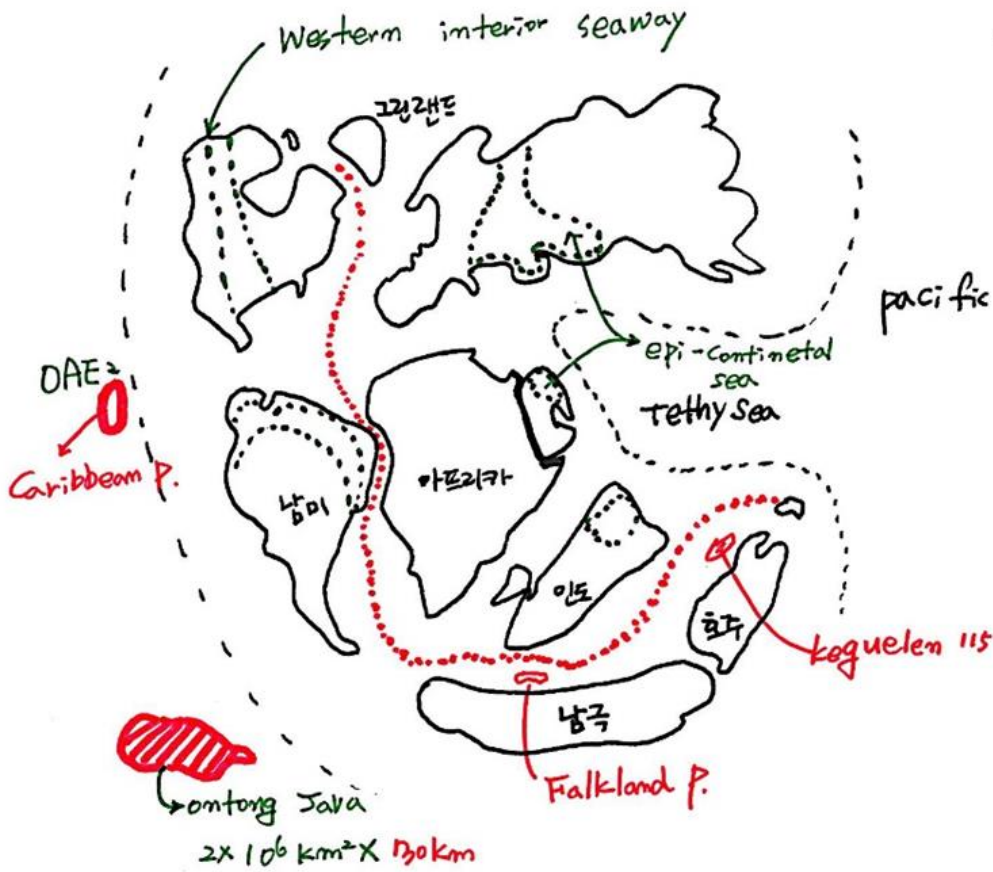 Western interior seaway
그린랜드
pacific
epi-continetal
sea
Tethy sea
OAE2
Caribbean P.
남미
아프리카
인도
호주
keguelen 115
남극
Falkland P.
ontong Java
2×10⁶ km² × 30km